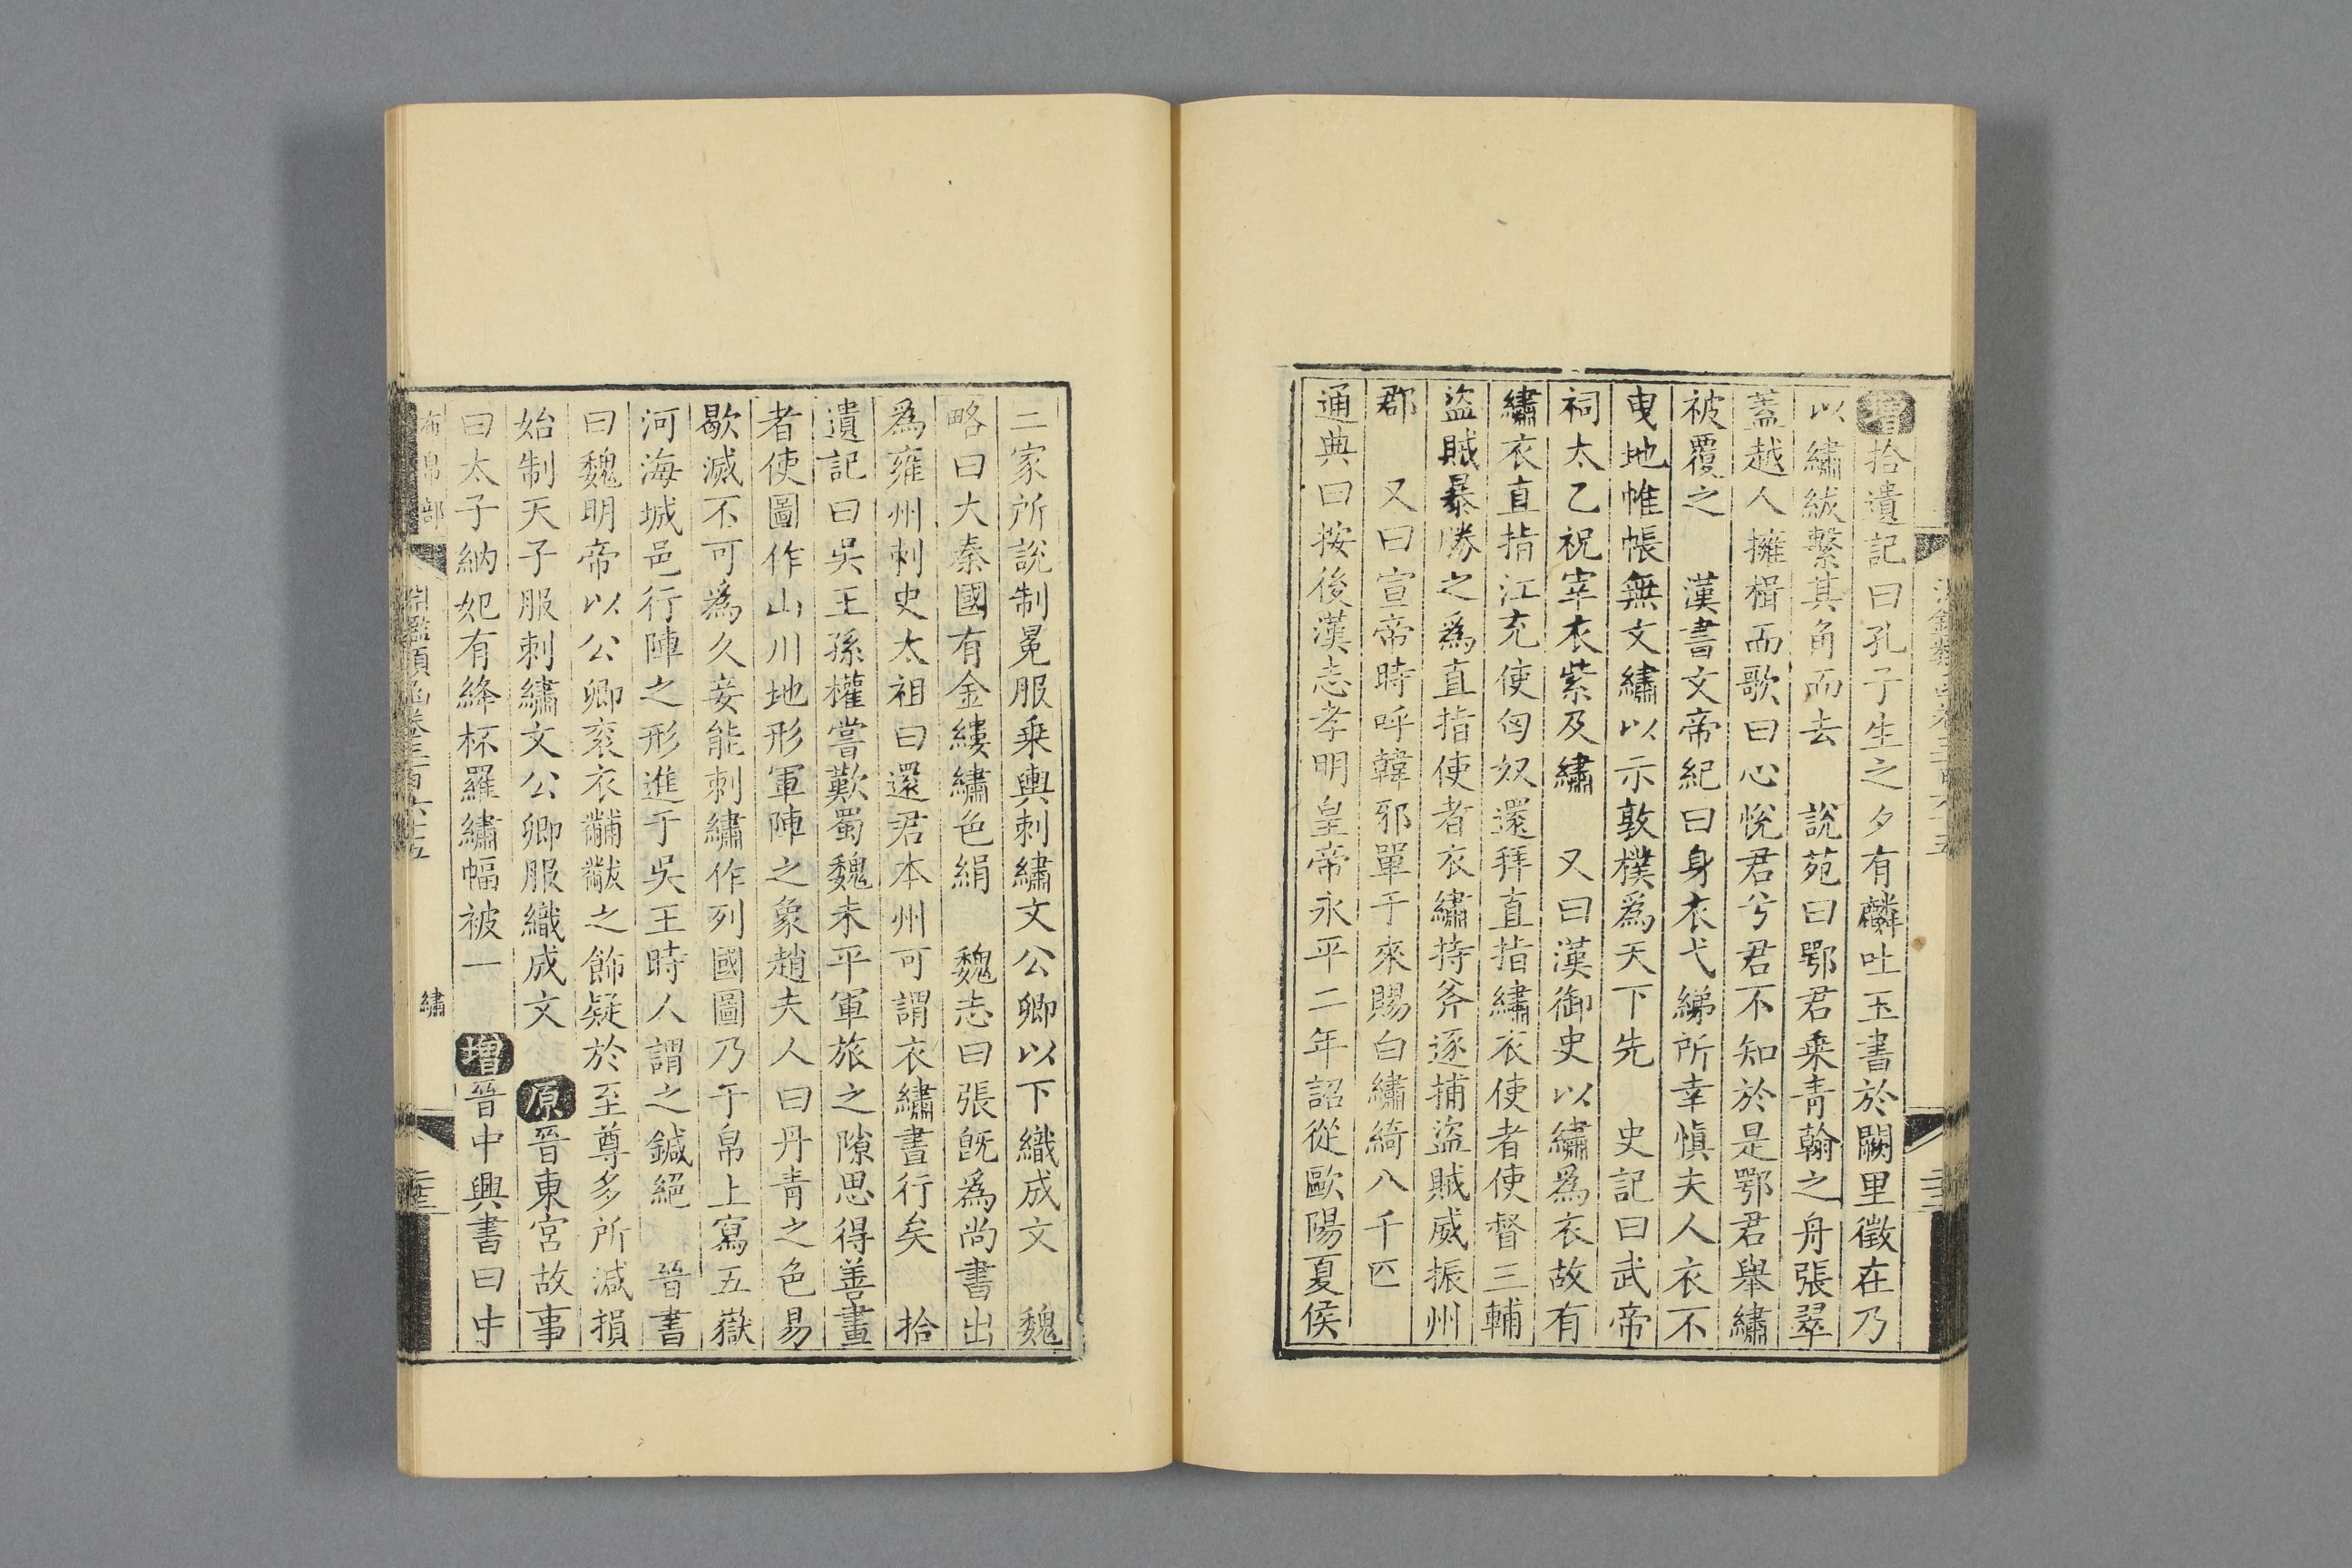 增拾遺記曰孔子生之夕有麟吐玉書於闕里徵在乃
以繡紱繫其角而去　說苑曰鄂君乗青翰之舟張翠
蓋越人擁楫而歌曰心悅君兮君不知於是鄂君舉繡
被覆之　漢書文帝紀曰身衣弋綈所幸慎夫人衣不
曳地帷帳無文繡以示敦樸爲天下先　史記曰武帝
祠太乙祝宰衣紫及繡　又曰漢御史以繡爲衣故有
繡衣直指江充使匈奴還拜直指繡衣使者使督三輔
盜賊暴勝之爲直指使者衣繡持斧逐捕盜賊威振州
郡　又曰宣帝時呼韓邪單于來賜白繡綺八千匹
通典曰按後漢志孝明皇帝永平二年詔從歐陽夏侯
二家所說制冕服乗輿刺繡文公卿以下織成文　魏
略曰大秦國有金縷繡色絹　魏志曰張旣爲尚書出
爲雍州刺史太祖曰還君本州可謂衣繡晝行矣　拾
遺記曰吳王孫權嘗歎蜀魏未平軍旅之隙思得善畫
者使圖作山川地形軍陣之象趙夫人曰丹青之色易
歇滅不可爲久妾能刺繡作列國圖乃于帛上寫五嶽
河海城邑行陣之形進于吳王時人謂之鍼絕　晉書
曰魏明帝以公卿衮衣黼黻之飾疑於至尊多所減損
始制天子服刺繡文公卿服織成文　原晉東宮故事
曰太子納妃有絳杯羅繡幅被一　增晉中興書曰中
布帛部　淵鑑類函卷三百六十五　繡